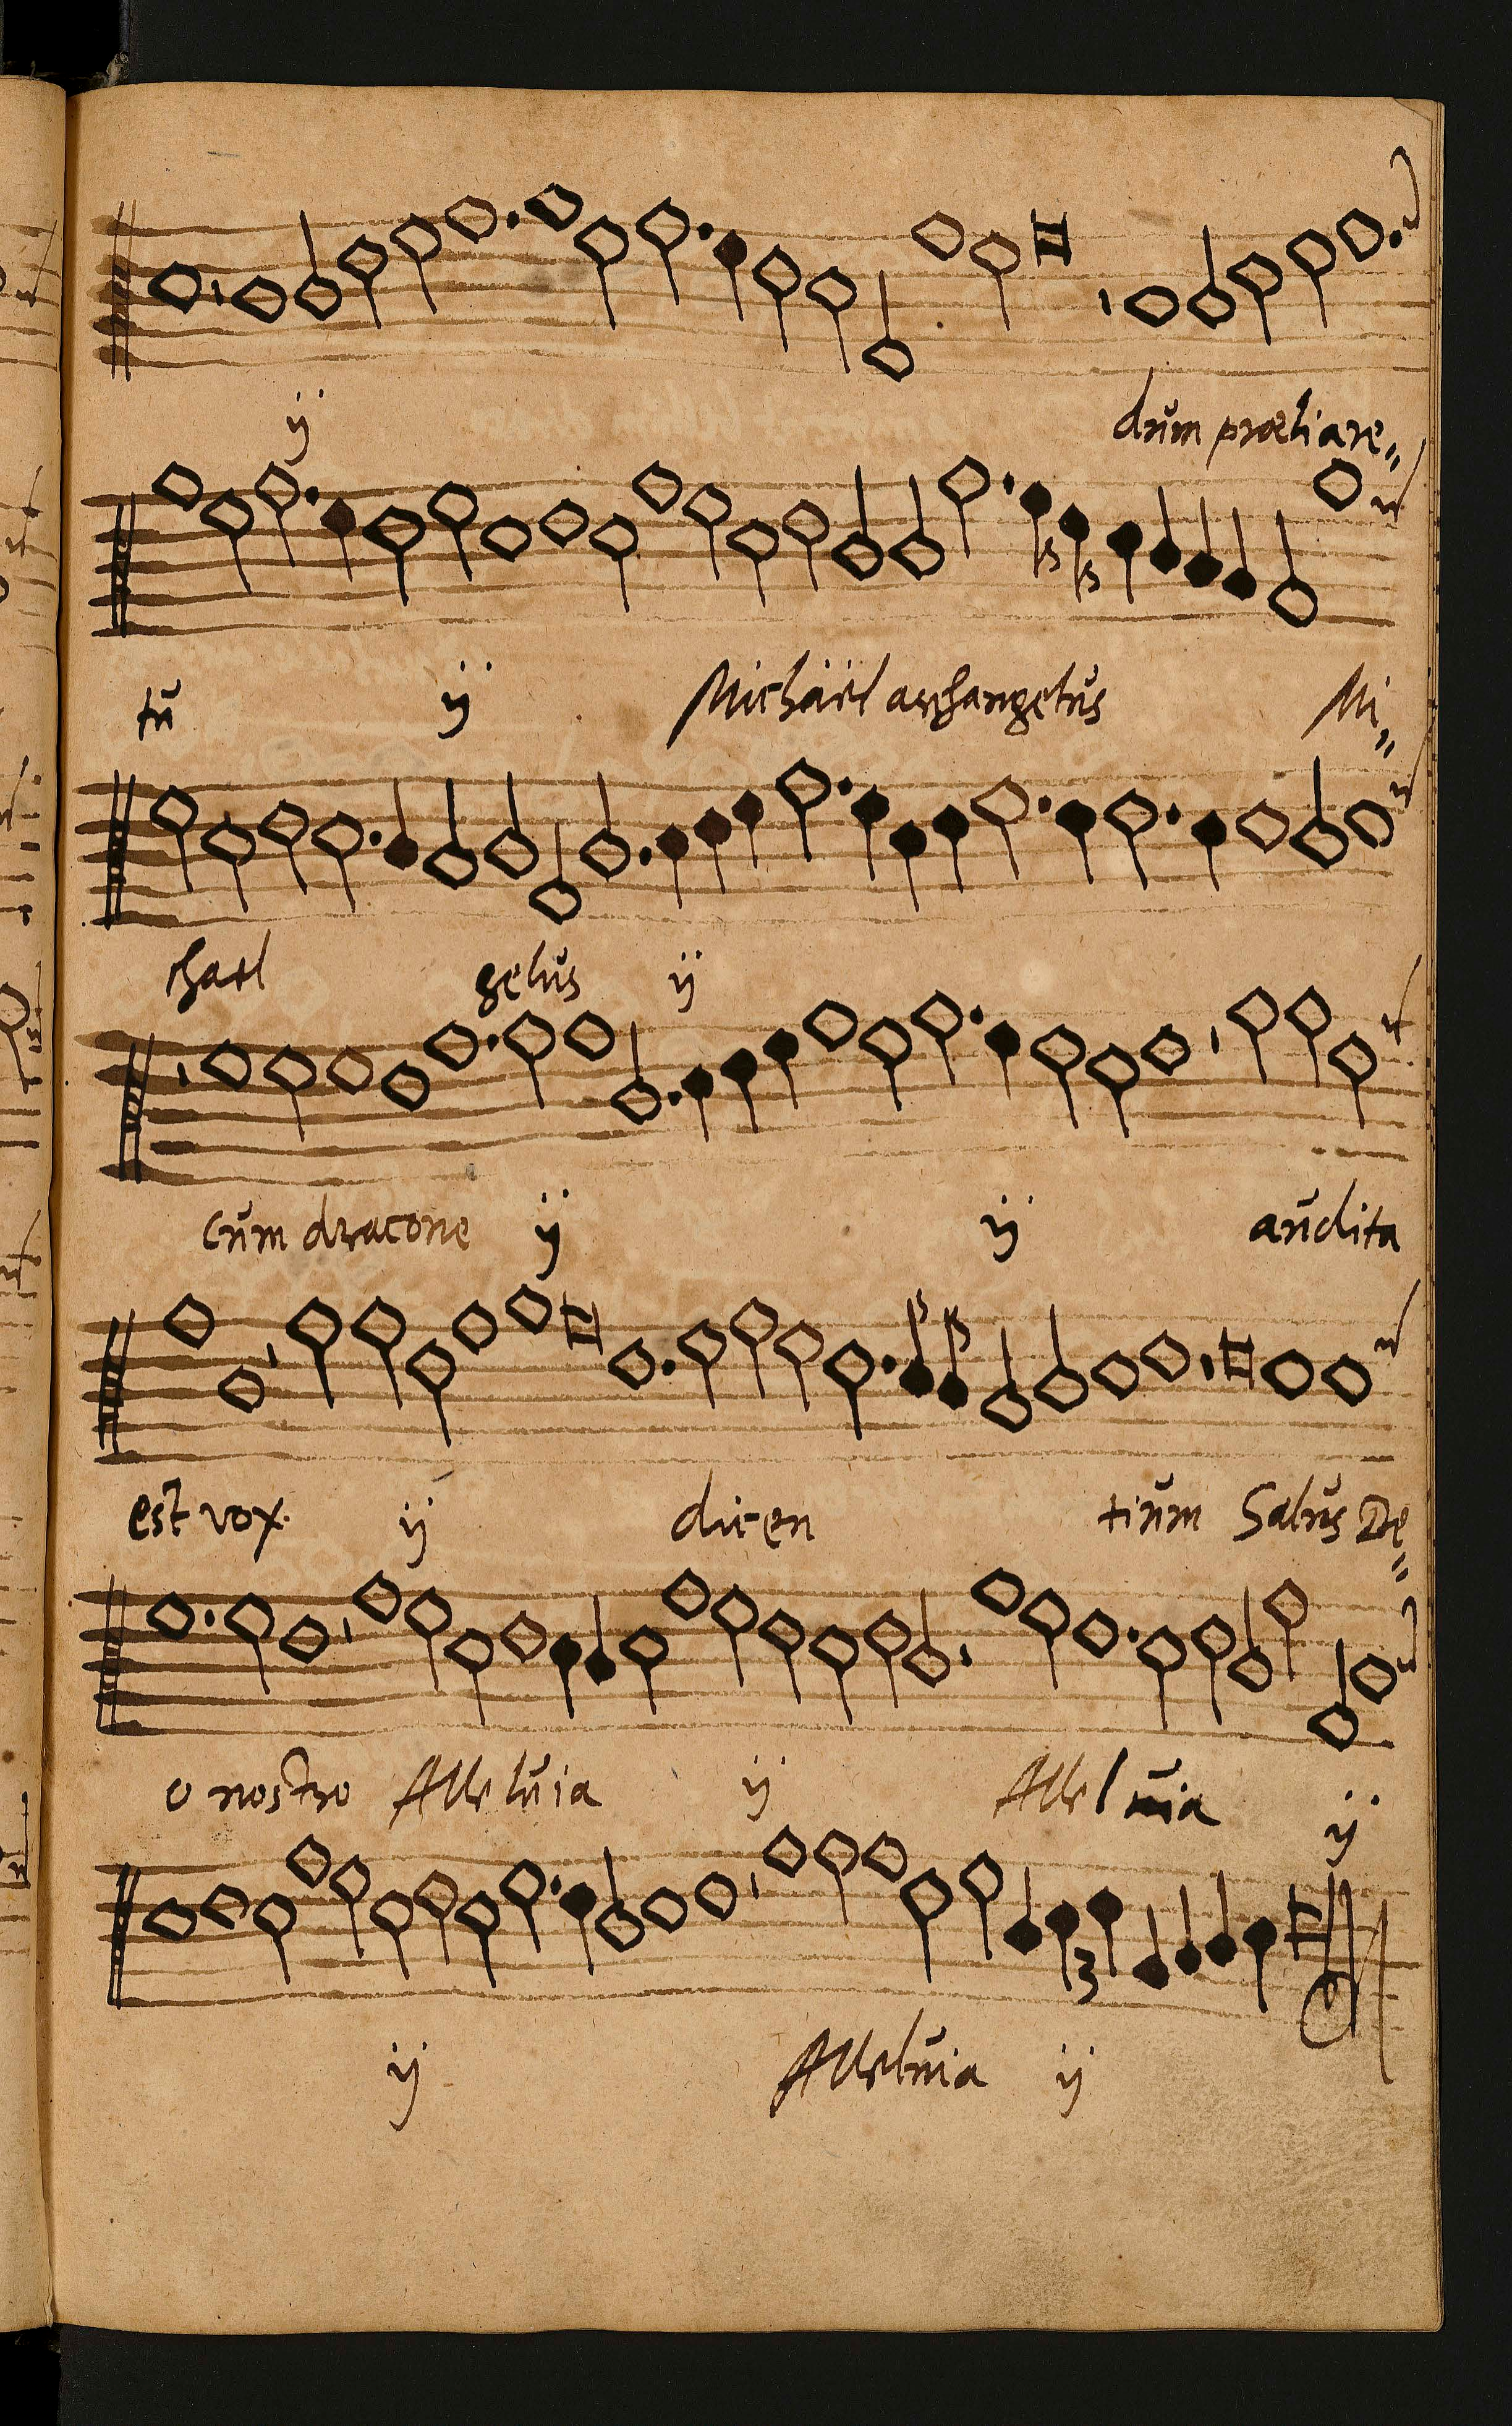 ij dum præliare„
tū ij Michäel archangelus Mi„
chael gelus ij
Cum dracone ij ij audita
est vox. ij dicen tium Salus De„
o nostro Alleluia ij Alleluia ij
ij Alleluia ij